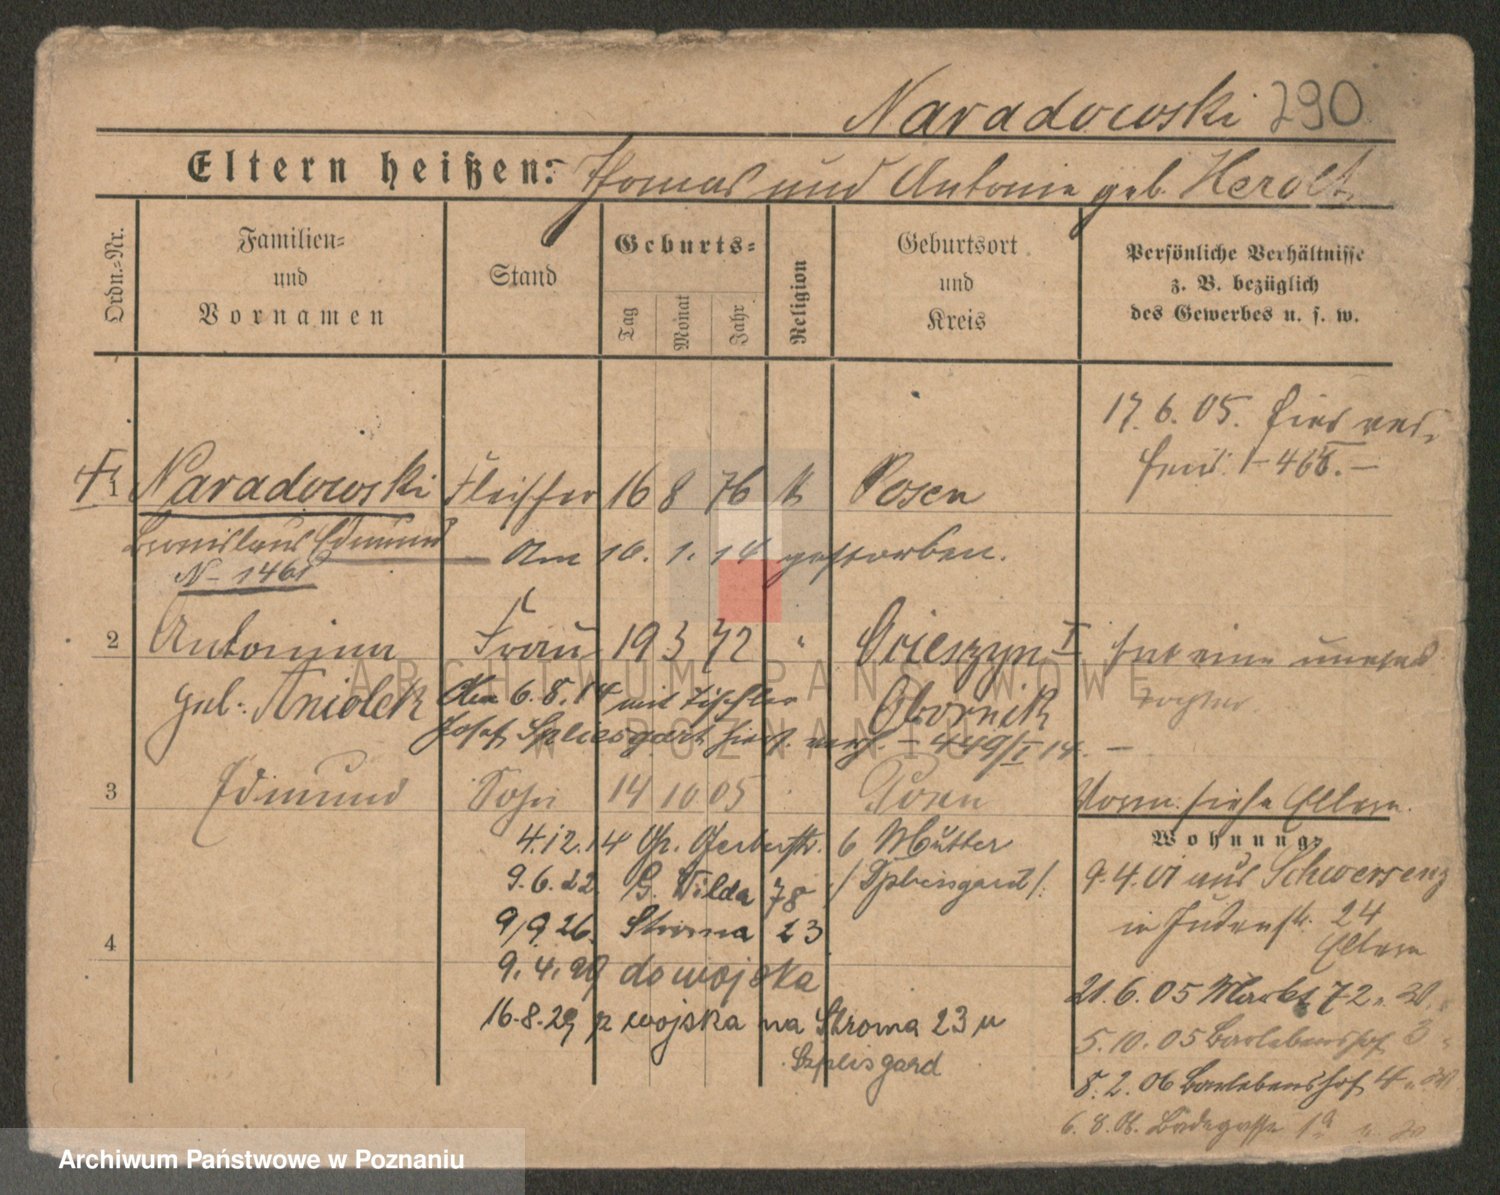 Naradowski 290
Eltern heißen: Thomas und Antonie geb. Herolt
Ordn.-Nr.
Familien- und Vornamen
Stand
Geburts-
Tag
Monat
Jahr
Religion
Geburtsort und Kreis
Persönliche Verhältnisse z. B. bezüglich des Gewerbes u. s. w.
17.6.05. hier
Naradowski Fleischer 16 8 76 k Posen
Bronislaus Edmund am 16.1.14 gestorben.
N- 1461
2 Antonina Frau 19 3 72 " I hat eine
geb. Aniolek Am 6.8.14 mit Tischler Obornik
Josef Spliesgart hier 449/I 14. —
3 Edmund Sohn 14 10 05 Posen Vorm. siehe Eltern.
Wohnung:
4.12.14 Gr. Gerberstr. 6 Mutter
9.6.22 G. Wilda 78 /Spleisgard/.
9/9.26. Stroma 23
4
9.4.29 do wojska
16.8.29 z wojska na Stroma 23 u
Szplisgard
9.4.01 aus Schwersenz
in Judenstr. 24
Eltern
21.6.05 Markt 72
5.10.05 Barlebenshof 3
8.2.06 Barlebenshof 4
6.8.08. Badegasse 1a
ARCHIWUM PAŃSTWOWE
W POZNANIU
Archiwum Państwowe w Poznaniu